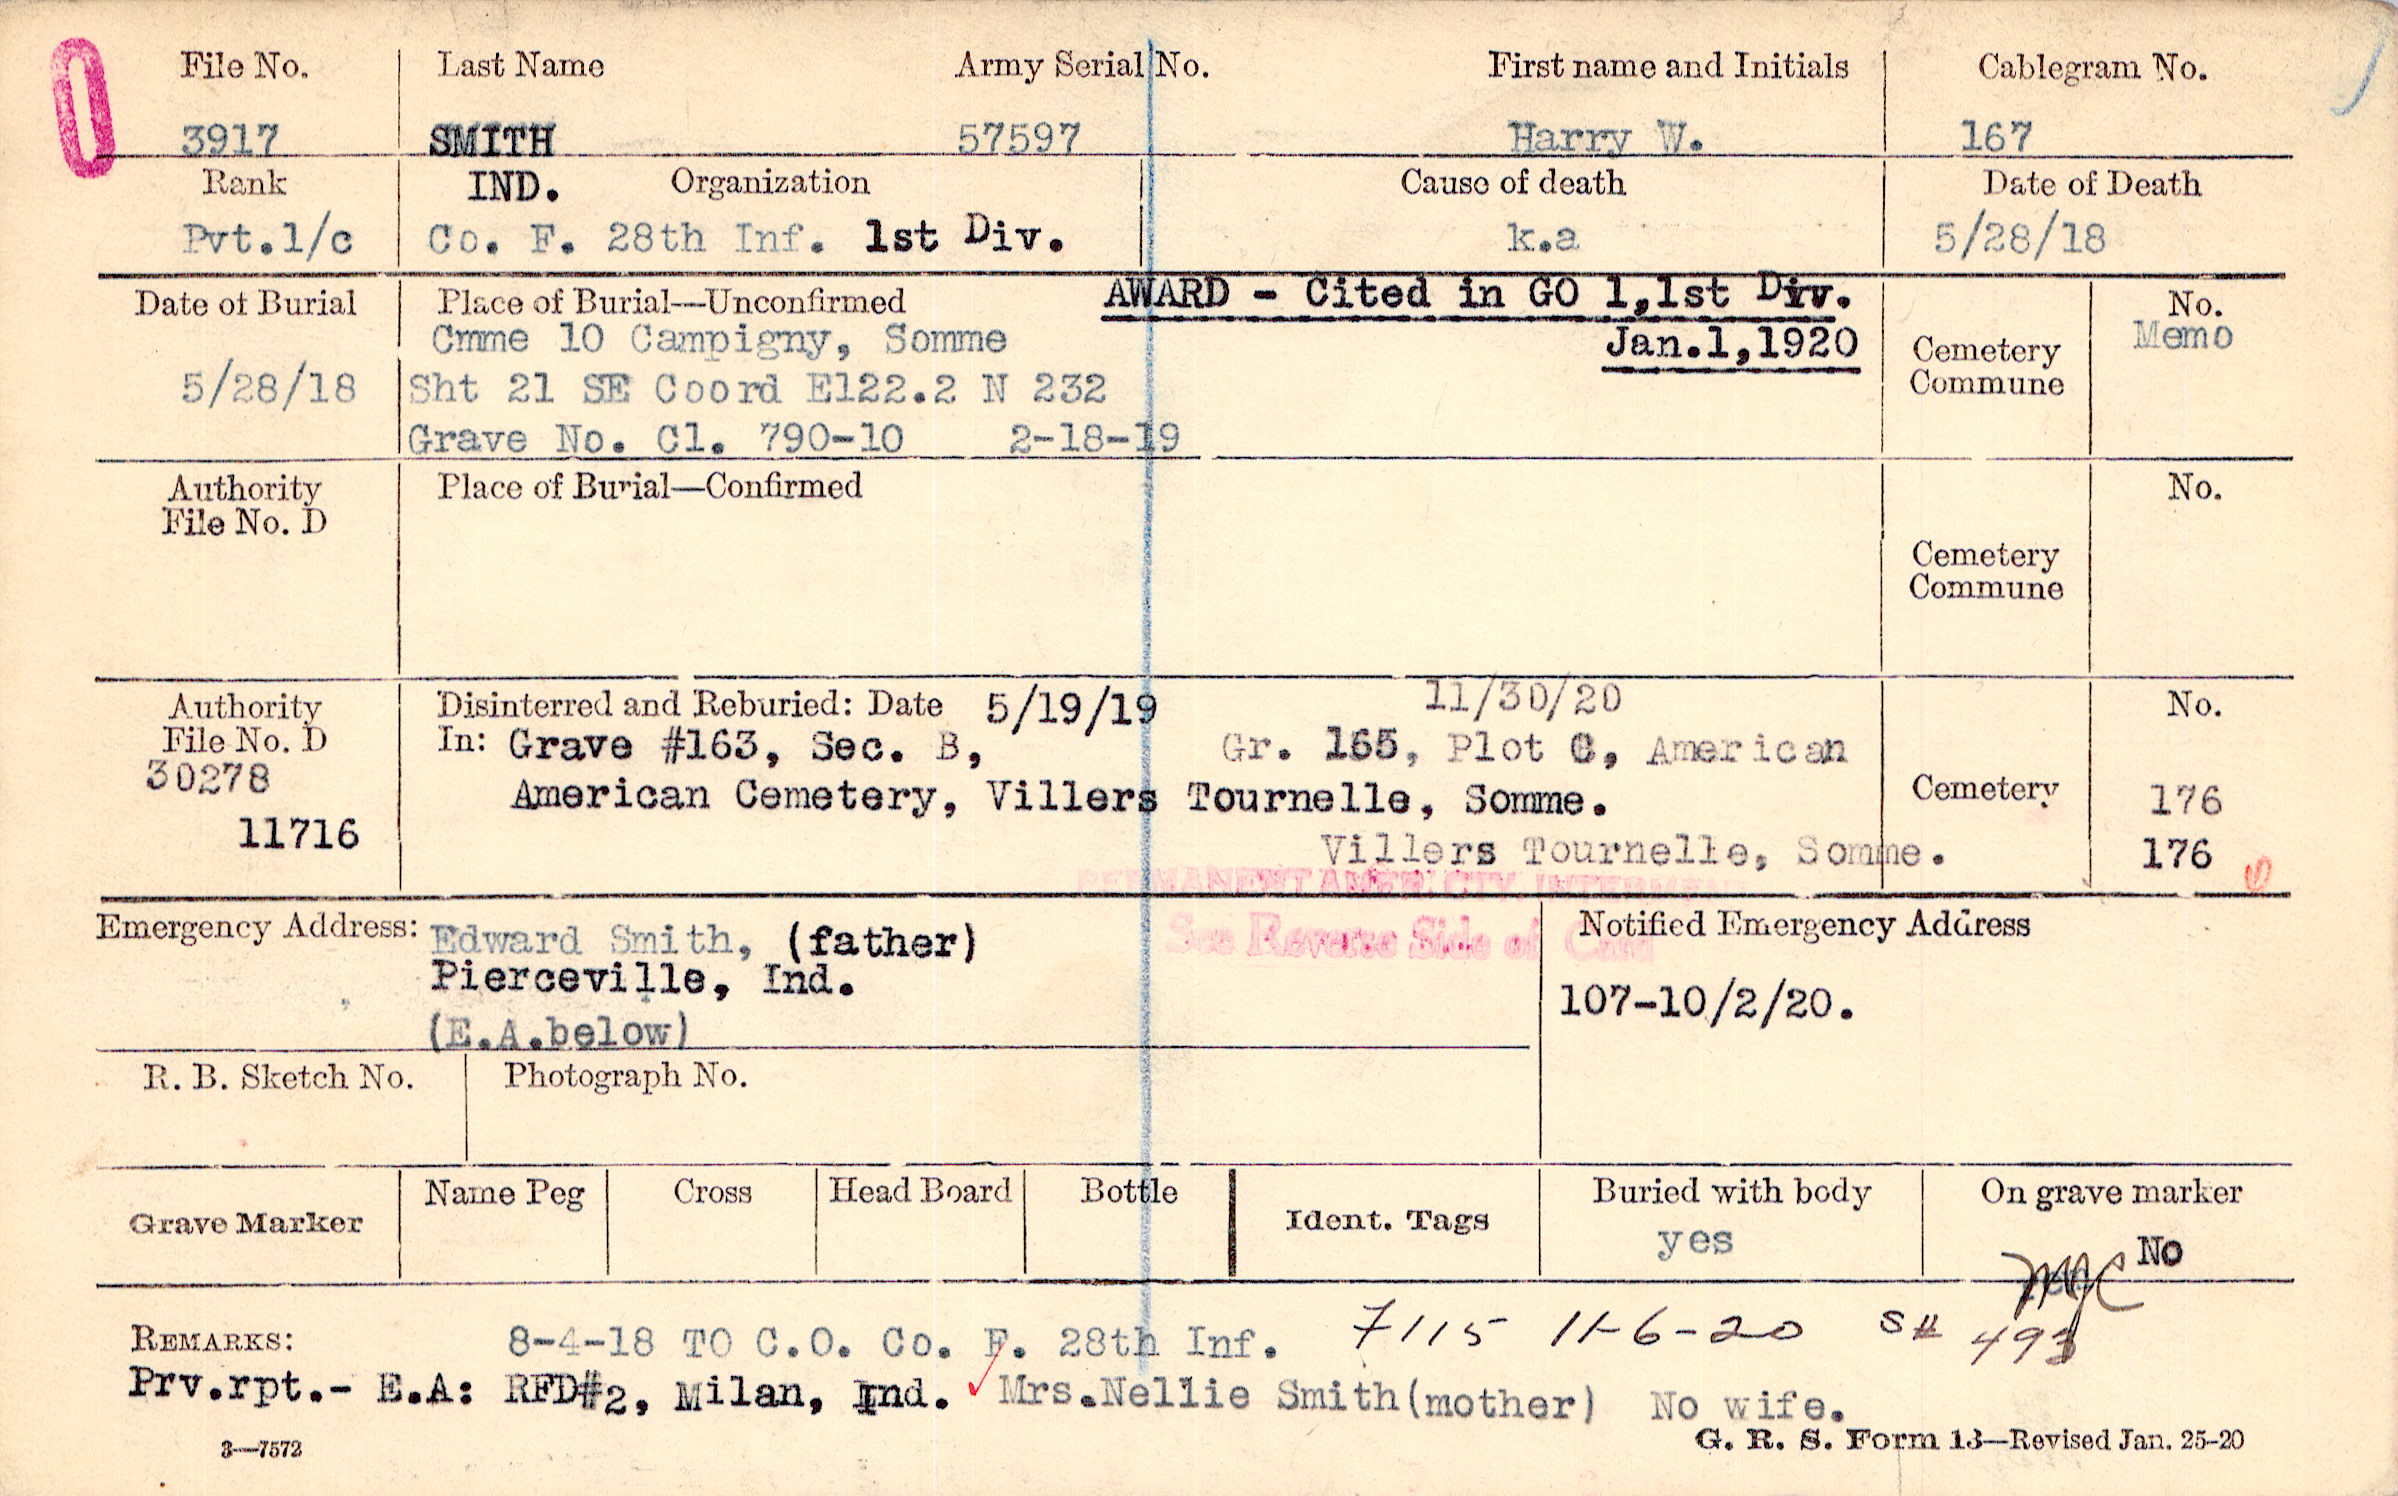 File No. Last Name Army Serial No. First name and Initials Cablegram No.
3917 SMITH 57597 Harry W. 167
Rank IND. Organization Cause of death Date of Death
Pvt.1/c Co. F. 28th Inf. 1st Div. k.a 5/28/18
AWARD - Cited in GO 1,1st Div.
Jan.1,1920
Date of Burial Place of Burial—Unconfirmed No.
Cmme 10 Campigny, Somme Cemetery Memo
5/28/18 Sht 21 SE Coord E122.2 N 232 Commune
Grave No. Cl. 790-10 2-18-19
Authority Place of Burial—Confirmed No.
File No. D
Cemetery
Commune
Authority Disinterred and Reburied: Date 5/19/19 11/30/20 No.
File No. D In: Grave #163, Sec. B, Gr. 165, Plot C, American
30278 American Cemetery, Villers Tournelle, Somme. Cemetery 176
11716 Villers Tournelle, Somme. 176
PERMANENT AMER. CTY. INTERMENT
See Reverse Side of Card
Emergency Address: Edward Smith, (father) Notified Emergency Address
Pierceville, Ind. 107-10/2/20.
(E.A.below)
R. B. Sketch No. Photograph No.
Grave Marker Name Peg Cross Head Board Bottle Ident. Tags Buried with body On grave marker
yes No
REMARKS: 8-4-18 TO C.O. Co. F. 28th Inf. 7115 11-6-20 S# 493
Prv.rpt.- E.A: RFD#2, Milan, Ind. Mrs.Nellie Smith(mother) No wife.
3—7572 G. R. S. Form 13—Revised Jan. 25-20